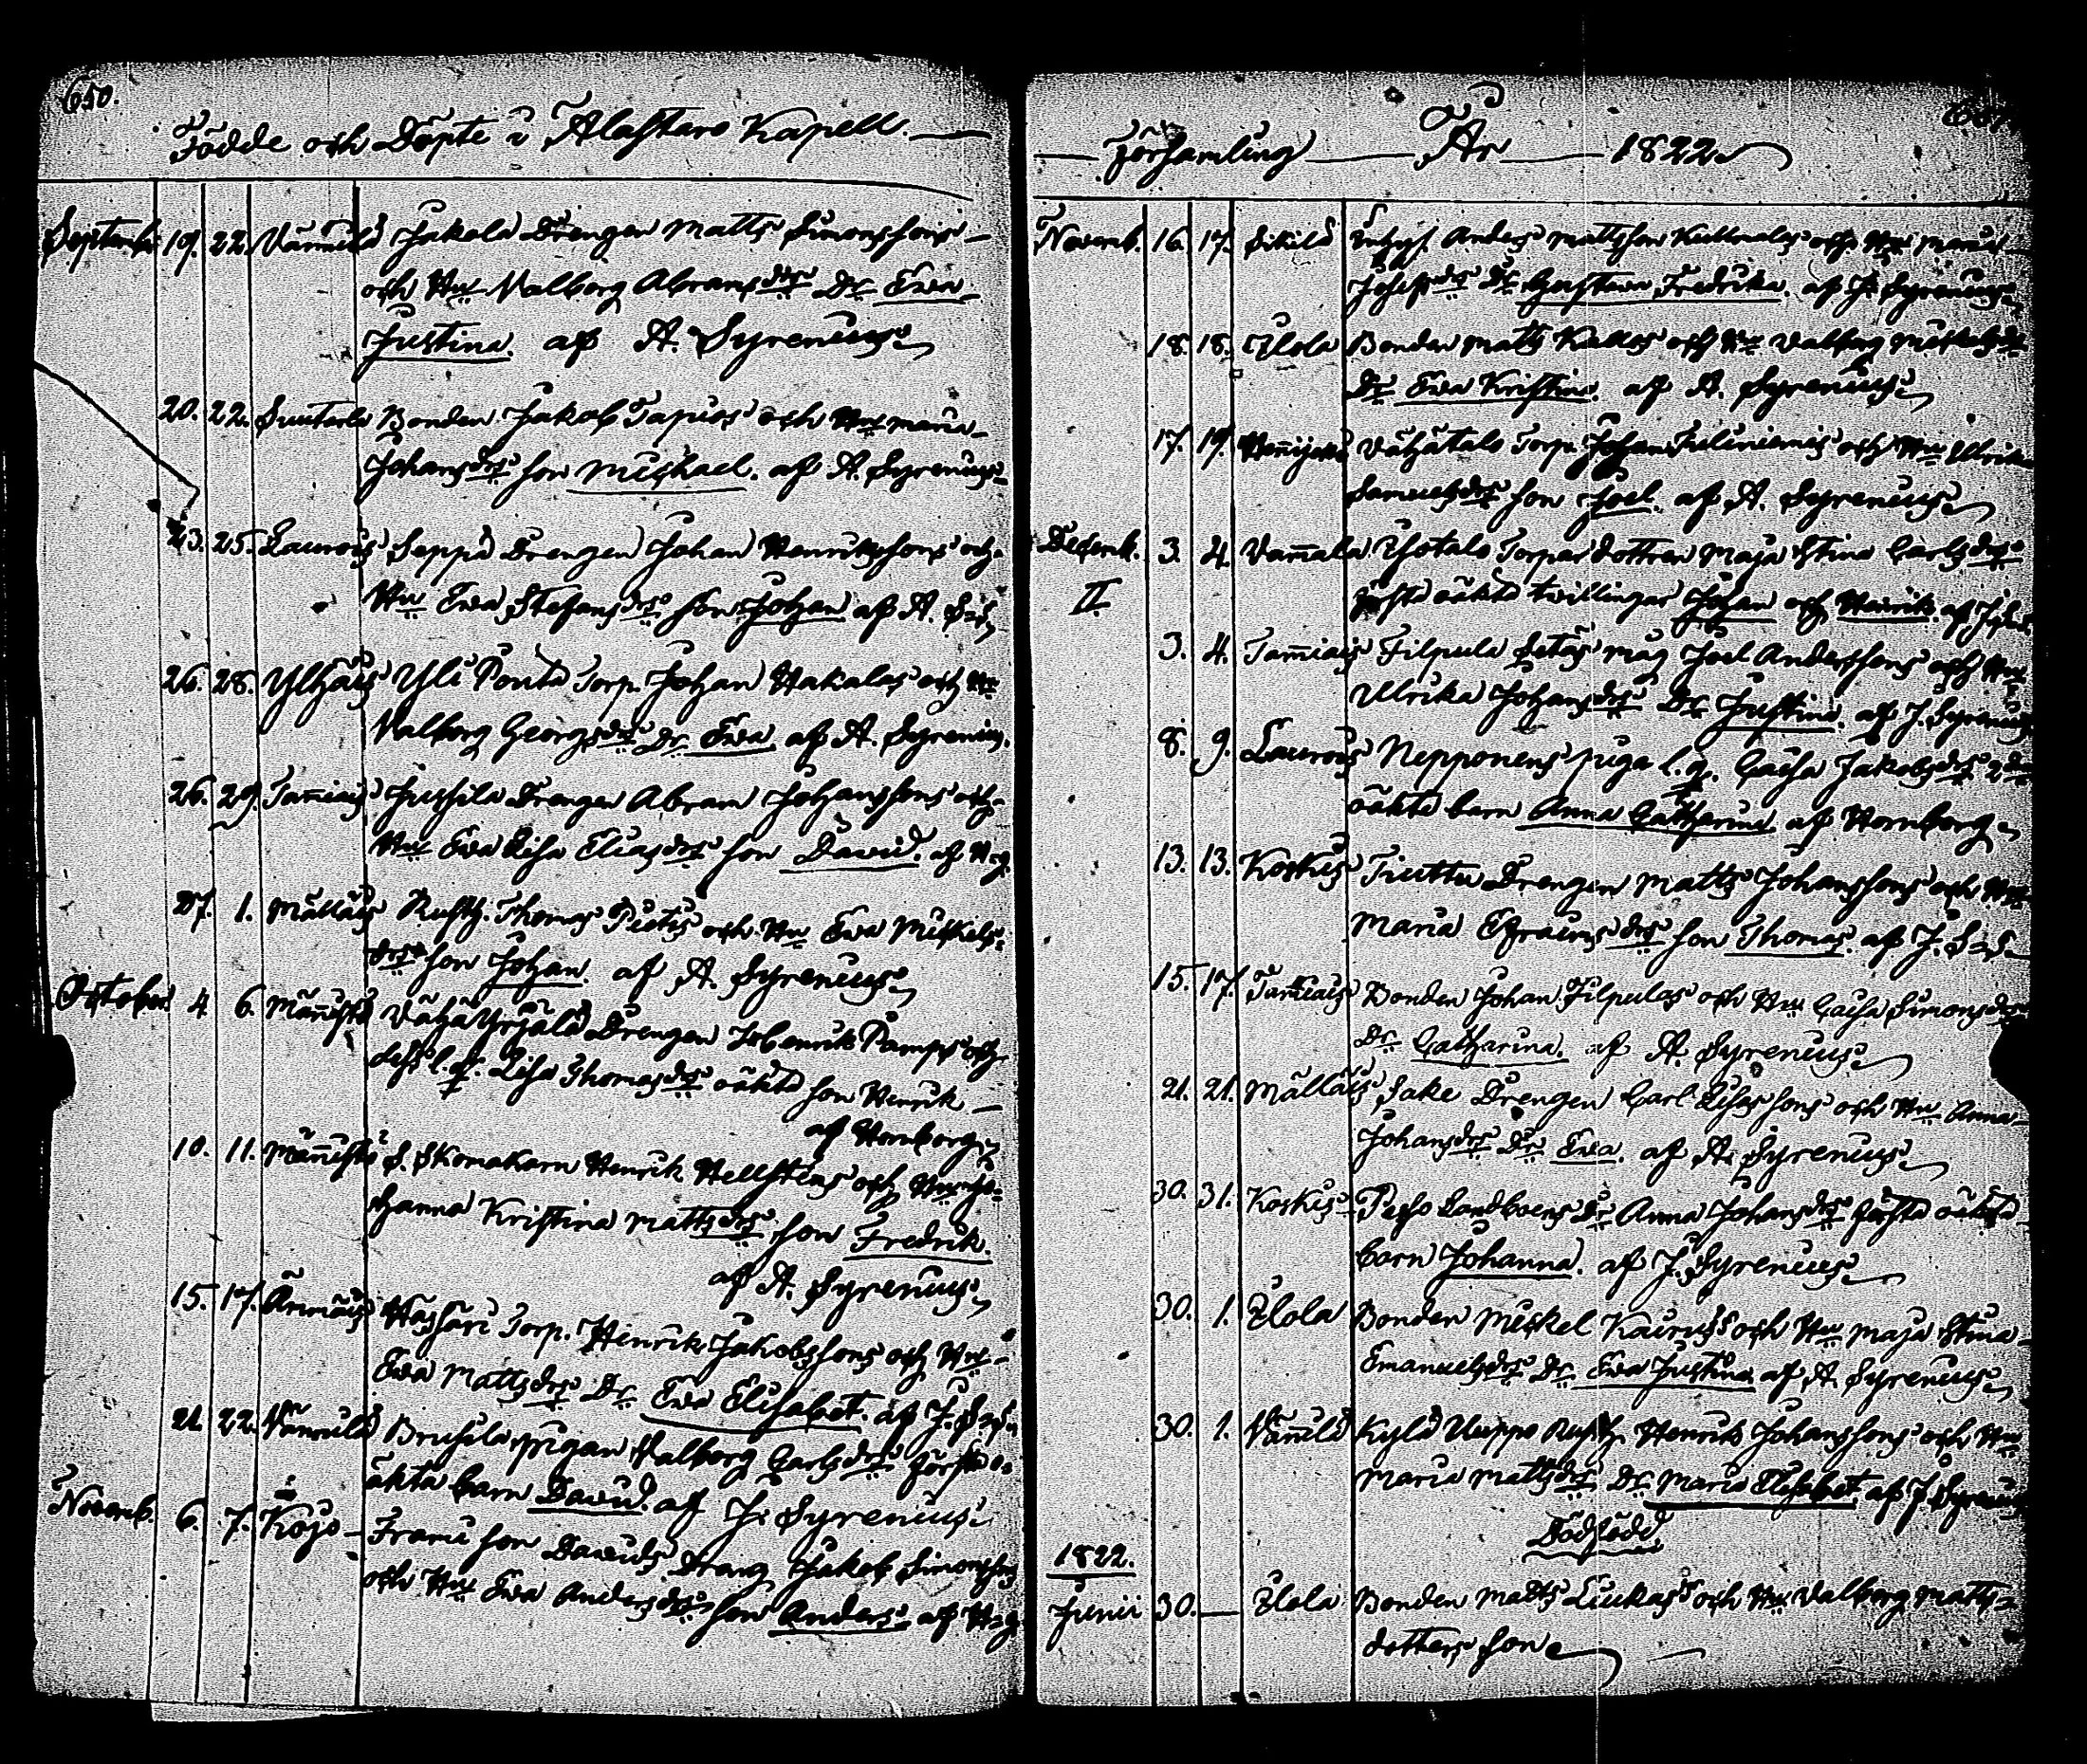 650.
Födde och Döpte i Alastaro Kapell.
Septemb. 19. 22. Vännilä Jakola Drengen Matts Simonssons
och Hu Valborg Abramsdrs Dr Ewa
Justina. af A. Syrenius
20. 22. Suutarla Bonden Jakob Tapios och Hu Maria
Johansdrs son Mickael. af A. Syrenius
23. 25. Laurois Seppä Drengen Johan Henrikssons och
Hu Ewa Stefansdrs son Johan af A. S-s
26. 28. Ylhäis Yli Ponto Torp. Johan Hakalas och Hu
Valborg Georgsdrs Dr Ewa af A. Syrenius.
26. 29. Tam̄iais Jussila Drengen Abram Johanssons och
Hu Ewa Lisa Eliasdrs son David. af H-g.
27. 1. Mälläis Rusth. Thomas Pietis och Hu Ewa Mickels
drs son Johan. af A. Syrenius
October 4. 6. Män̄istö Vähä Yrjälä Drengen Joh. Henrik Pamps och
dess l. q. Lisa Thomasdrs oäkta son Henrik
af Hornborg
10. 11. Män̄istö S. Skomakarn Henrik Hellstens och Hu Jo-
hanna Kristina Mattsdrs son Fredrik.
af A. Syrenius
15. 17. Änmäis Hassari Torp. Henrik Jakobssons och Hu
Ewa Mattsdrs Dr Ewa Elisabet. af J. S-s.
21. 22. Vännilä Brusila pigan Valborg Carlsdrs första o-
äkta barn David. af J. Syrenius
Novemb. 6. 7. Köjö Frami son Davids Dräng Jakob Simonssons
och Hu Ewa Andersdrs son Anders af H-g
Församling År 1822
Novemb. 16. 17. Sikilä Inhys. Anders Mattsson Kullonalas och Hu Maria
Josefsdrs Dr Gustava Fredrika. af J. Syrenius
18. 18. Ylola Bonden Matts Kallas och Hu Valborg Mickelsdrs
Dr Ewa Kristina. af A. Syrenius
17. 19. Vähätalo Torp. Johan Juliniemis och Hu Ulrika
Samuelsdrs son Joel. af A. Syrenius
Decemb. 3. 4. Vam̄ala Isotalo Torpar dottren Maja Stina Carlsdrs
II första oäkta twillingar Johan och Henrik. af
3. 4. Tam̄iais Filpula Petas måg Joel Anderssons och Hu
Ulrika Johansdrs Dr Justina. af J. Syrenius
8. 9. Laurois Nepponens piga l. q. Caisa Jakobsdrs 2dra
oäkta barn Anna Catharina af Hornborg
13. 13. Koskis Tiuttu Drengen Matts Johanssons och Hu
Maria Efraimsdrs son Thomas. af J. S-s
15. 17. Tam̄iais Bonden Johan Filpulas och Hu Caisa Simonsdrs
Dr Catharina. af A. Syrenius
21. 21. Mälläis Sake Drengen Carl Esassons och Hu Anna
Johansdrs Dr Ewa. af A. Syrenius
30. 31. Koskis Pesso Landboens Dr Anna Johansdrs första oäkta
barn Johanna. af J. Syrenius
30. 1. Ylola Bonden Mickel Kairus och Hu Maja Stina
Emanuelsdrs Dr Ewa Justina af A. Syrenius
30. 1. Vännilä Kylä Uuppo Rusth. Henrik Johanssons och Hu
Maria Mattsdrs Dr Maria Elisabet af J. Syrenius
Dödfödd
1822.
Junii 30. — Ylola Bonden Matts Liukas och Hu Valborg Matts
dotters son